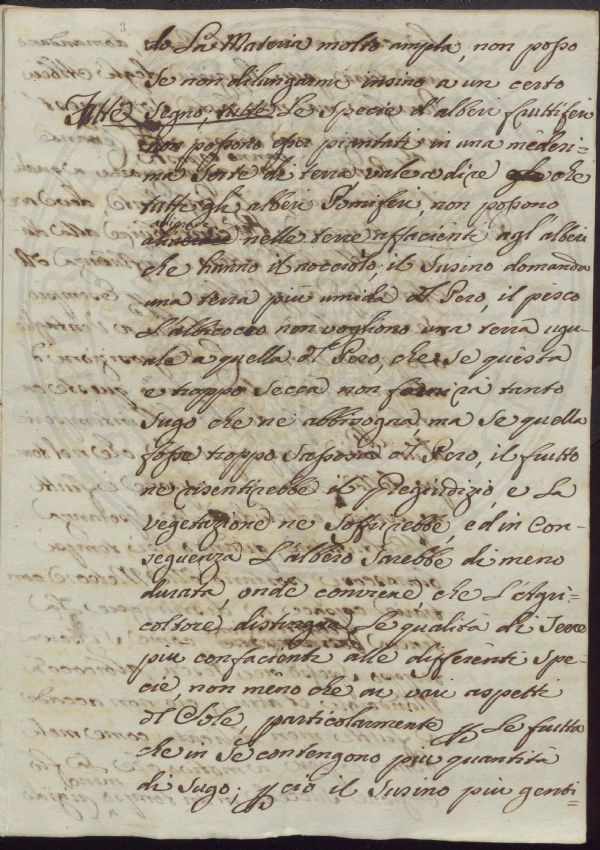 do La Materia molto ampla, non posso
se non dilungarmi insino a un certo
Segno, tutte Le Specie d'alberi fruttiferi
non possono esser piantati in una medesi=
ma Sorte di terra vale a dire che
tutti gl'alberi Pomiferi, non possono
allignare
nelle terre affacienti agl'alberi
che hanno il nocciolo, il Susino domanda
una terra più umida del Pero, il pesco
L'albicocco non vogliono una terra ugu=
ale a quella del Pero, che se questa
è troppo secca non fornirà tanto
sugo che ne abbisogna ma se quella
fosse troppo del Pero, il frutto
ne risentirebbe il Pregiudizio, e La
vegetazione ne Soffrirebbe, ed in Con=
seguenza L'albero Sarebbe di meno
durata, onde conviene che L'Agri=
coltore distingua Le qualità di Terre
più confacienti alle differenti spe=
cie, non meno che ai vari aspetti
del Sole, particolarmente p Le frutta
che in Se contengono più quantità
di sugo; p ciò il Susino più genti=